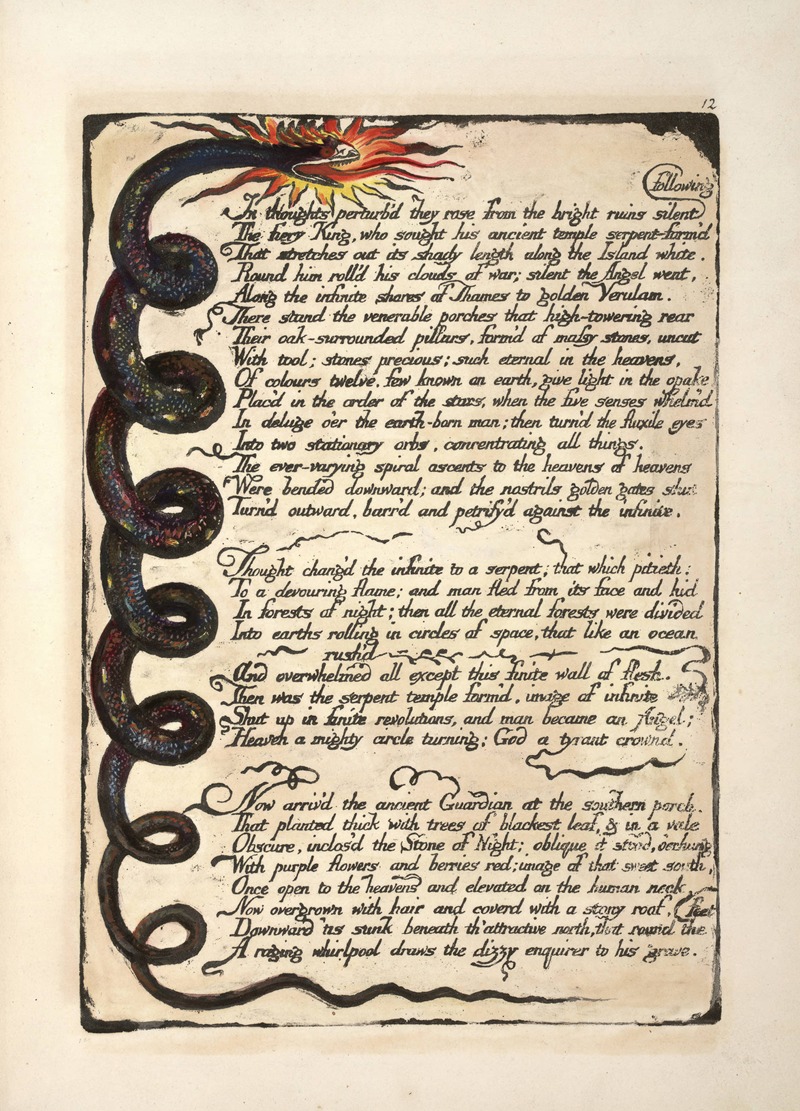 12
following
In thoughts perturb'd they rose from the bright ruins silent
The fiery King, who sought his ancient temple serpent-form'd
That stretches out its shady length along the Island white.
Round him roll'd his clouds of war; silent the Angel went,
Along the infinite shores of Thames to golden Verulam.
There stand the venerable porches that high-towering rear
Their oak-surrounded pillars, form'd of massy stones, uncut
With tool; stones precious; such eternal in the heavens,
Of colours twelve, few known on earth, give light in the opake
Plac'd in the order of the stars, when the five senses whelm'd
In deluge o'er the earth-born man; then turn'd the fluxile eyes
Into two stationary orbs, concentrating all things.
The ever-varying spiral ascents to the heavens of heavens
Were bended downward; and the nostrils golden gates shut
Turn'd outward, barr'd and petrify'd against the infinite.
Thought chang'd the infinite to a serpent; that which pitieth:
To a devouring flame; and man fled from its face and hid
In forests of night; then all the eternal forests were divided
Into earths rolling in circles of space, that like an ocean
rush'd
And overwhelmed all except this finite wall of flesh.
Then was the serpent temple form'd, image of infinite
Shut up in finite revolutions, and man became an Angel;
Heaven a mighty circle turning; God a tyrant crown'd.
Now arriv'd the ancient Guardian at the southern porch.
That planted thick with trees of blackest leaf, & in a vale
Obscure, inclos'd the Stone of Night; oblique it stood, o'erhung
With purple flowers and berries red; image of that sweet south,
Once open to the heavens and elevated on the human neck,
Now overgrown with hair and coverd with a stony roof,
Downward 'tis sunk beneath th' attractive north, that round the feet
A raging whirlpool draws the dizzy enquirer to his grave.